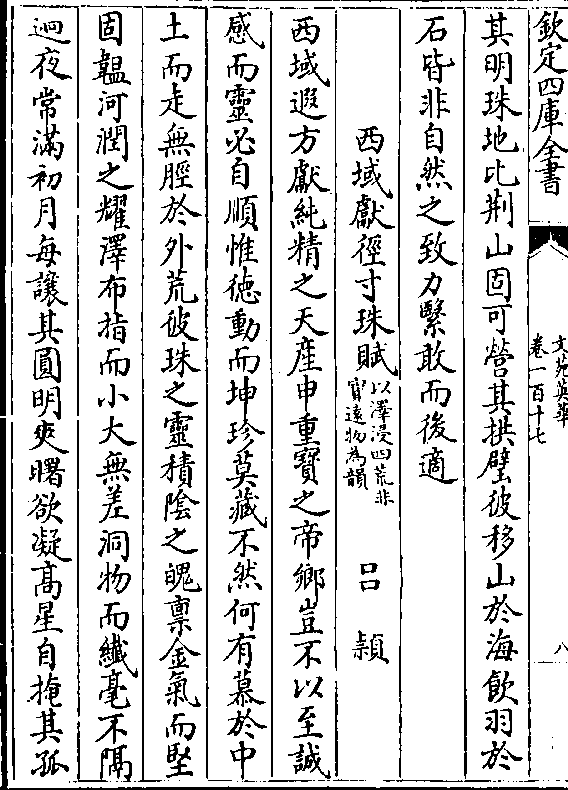 欽定四庫全書
文苑英華
卷一百十七
八
其明珠地比荆山固可營其拱璧彼移山於海飲羽於
石皆非自然之致力繄敢而後適
西域獻徑寸珠賦以澤浸四荒非寳遠物為韻 吕頴
西域遐方獻純精之天産申重寶之帝鄉豈不以至誠
感而靈必自順惟徳動而坤珍莫藏不然何有慕於中
土而走無脛於外荒彼珠之靈積陰之魄禀金氣而堅
固韞河潤之耀澤布指而小大無差洞物而纎毫不隔
逈夜常滿初月每讓其圓明爽曙欲凝髙星自掩其孤